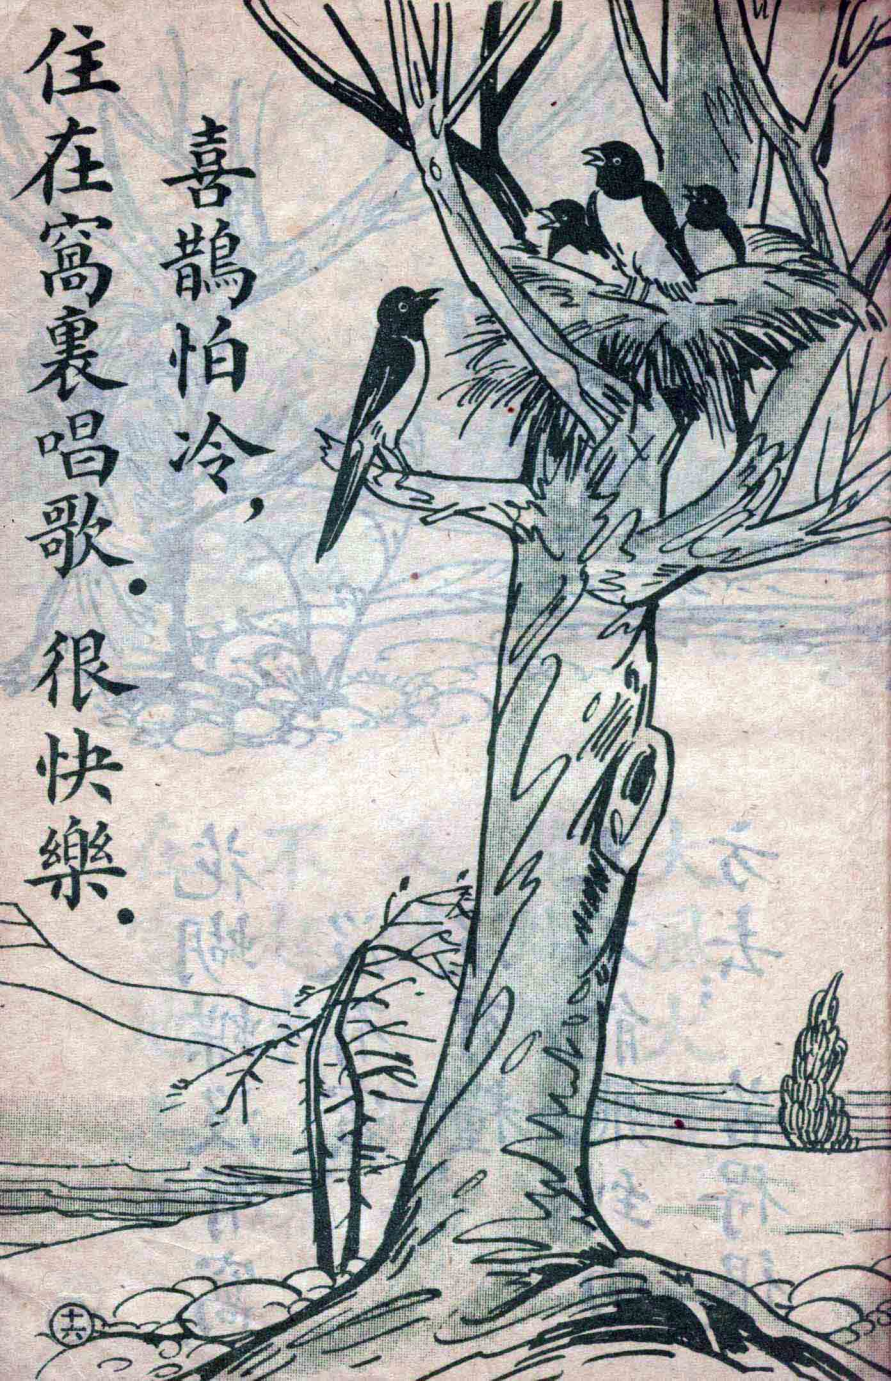 喜鵲怕冷，
住在窩裏唱歌．很快樂．
十六